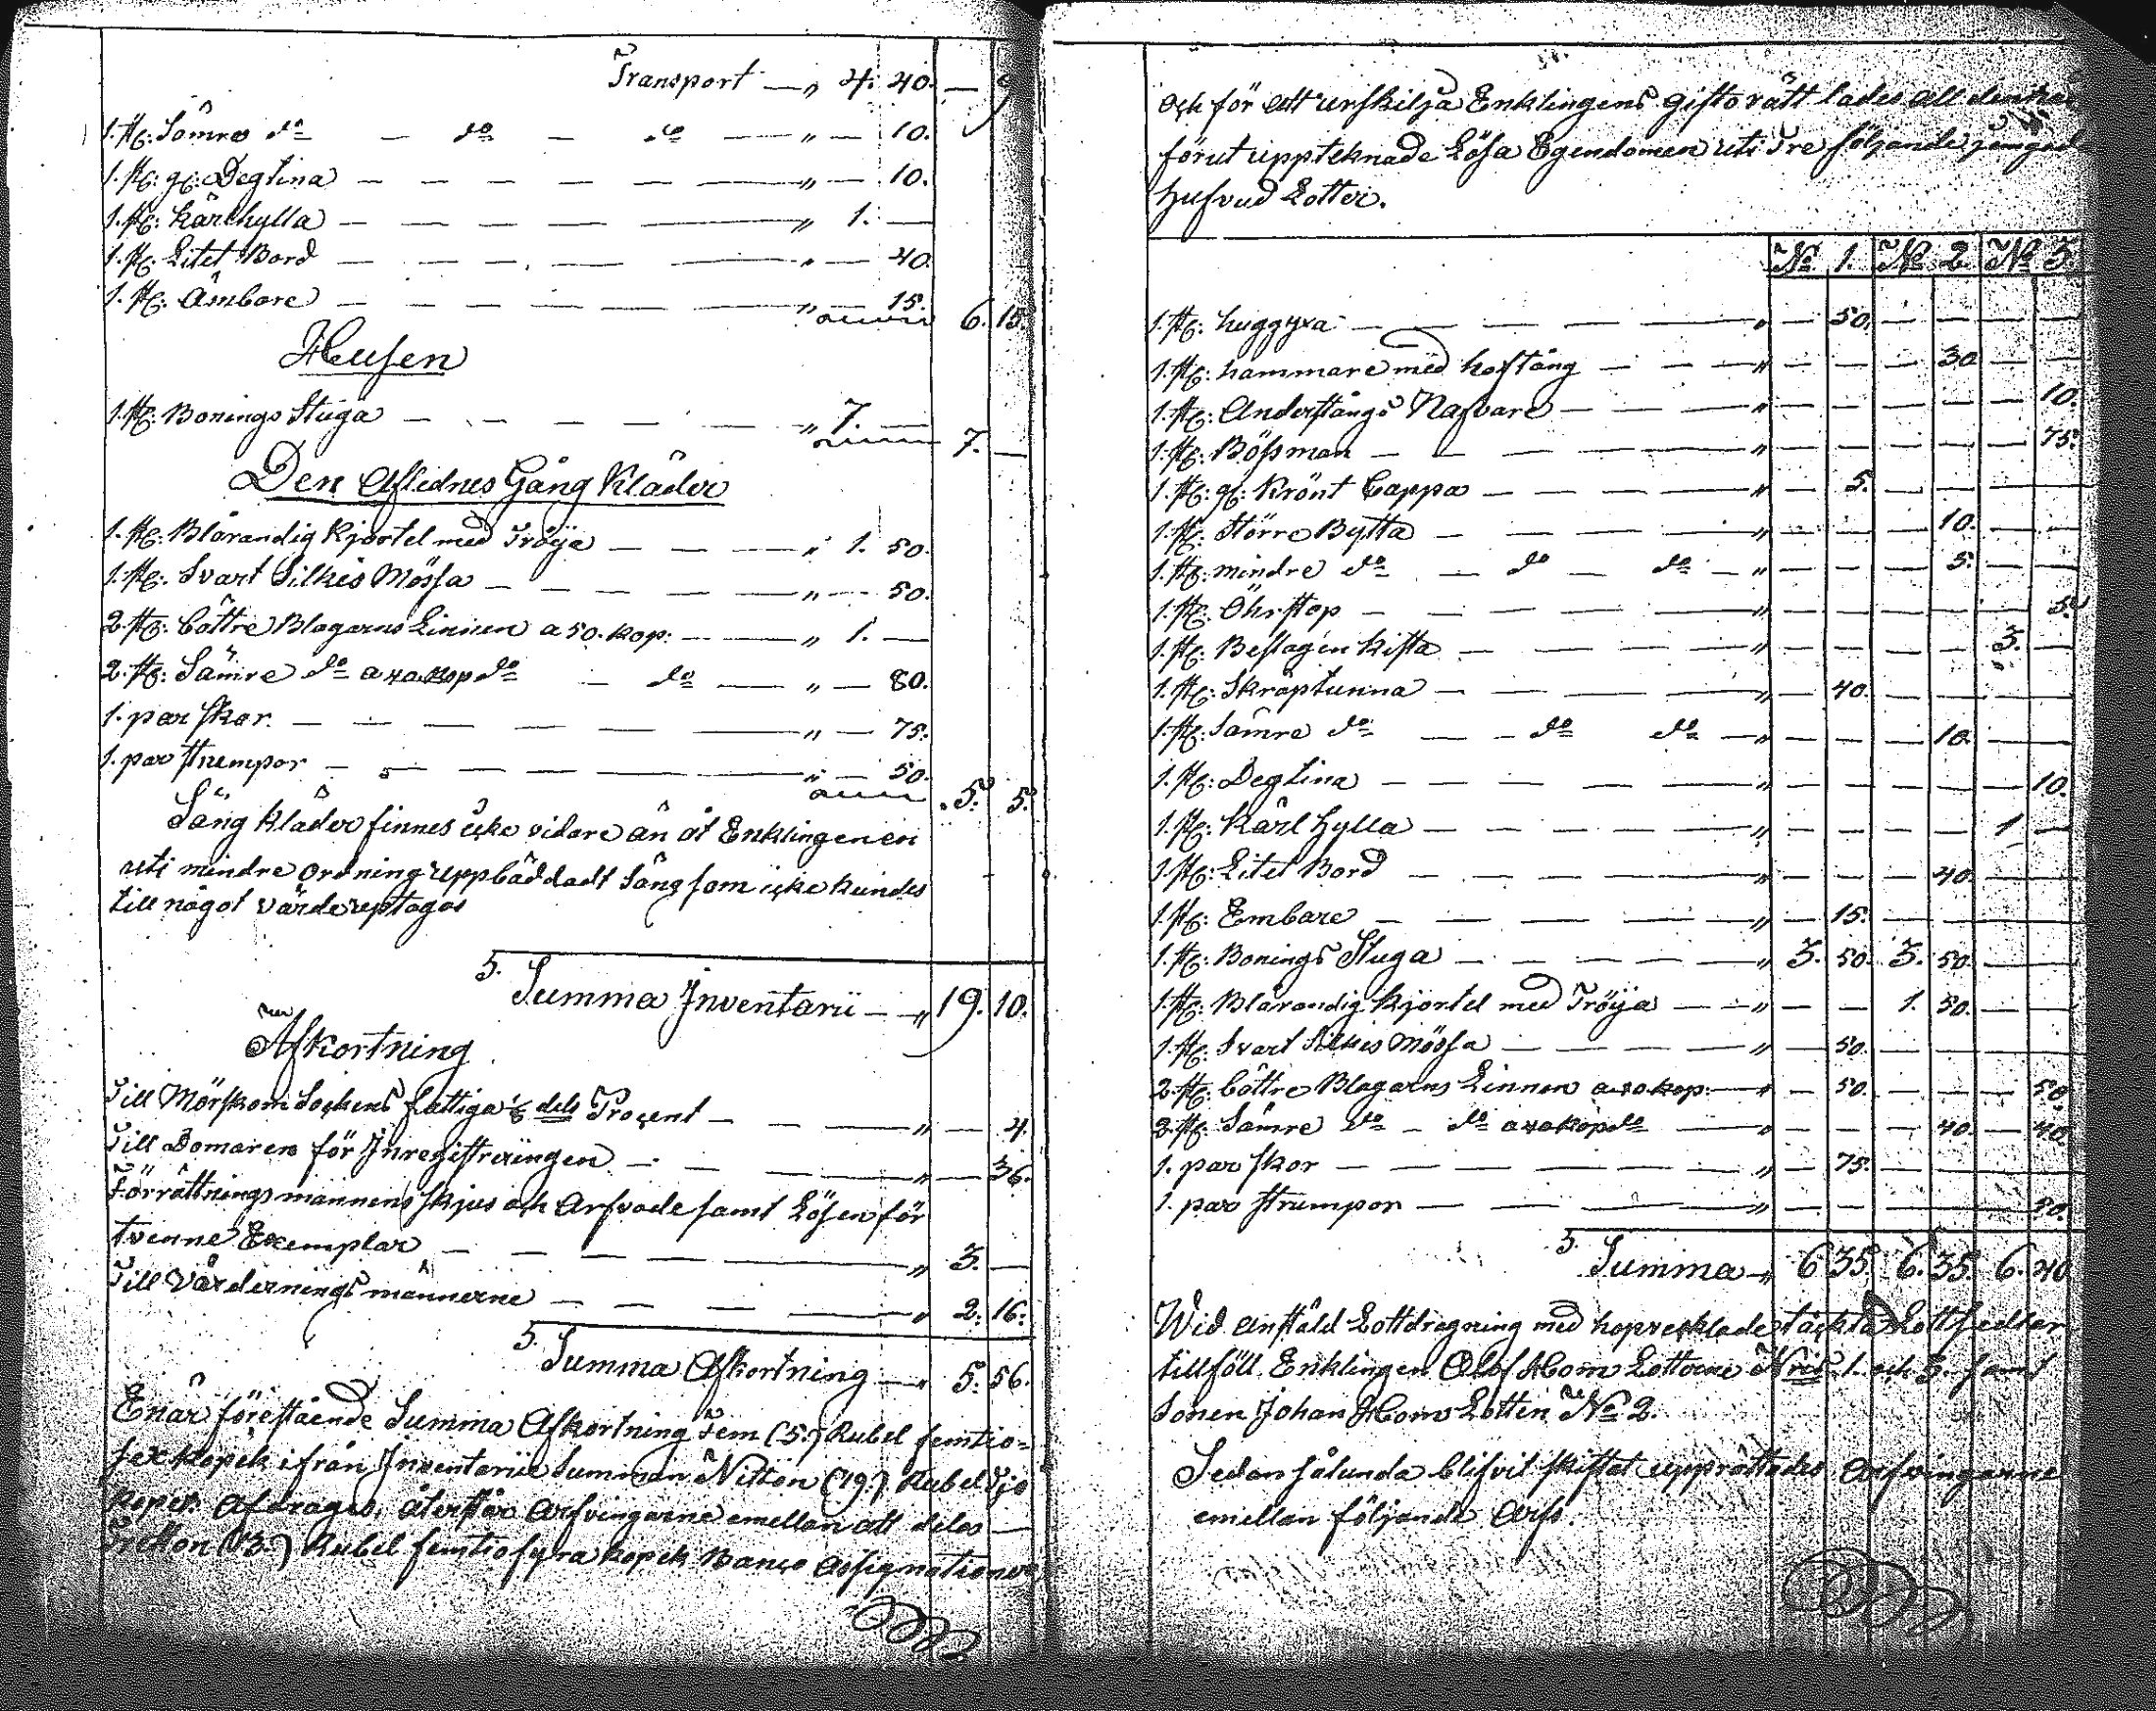 Transport — „ 4. 40. —
1. st: Sämre do — do — do — „ — 10.
1. st: gl: Degtina — „ — 10.
1. st: Kärlhylla — „ 1. —
1. st: Litet Bord — „ — 40.
1. st: Ämbare — „ — 15. 6. 15.
Husen
1. st: Bonings Stuga — „ 7. — 7. —
Den Aflednes Gång Kläder
1. st: Blårandig Kjortel med Tröija — „ 1. 50.
1. st: Svart Silkes Mössa — „ — 50.
2. st: bättre Blagarns Linnen a 50. kop: — „ 1. —
2. st: Sämre do a 40 kop do — do — „ — 80.
1. par skor — „ — 75.
1. par strumpor — „ — 50. 5. 5.
Säng kläder finnes icke vidare än åt Enklingen en
uti mindre ordning uppbäddadt Säng som icke kundes
till något värde uptagas
S. Summa Inventarii — „ 19. 10.
Afkortning
Till Mörskom Sockens fattiga 1/8 dels Procent — „ — 4.
Till Domaren för Inregistreringen — „ — 36.
Förrättningsmannens skjus och Arfvode samt Lösen för
tvenne Exemplar — „ 3. —
Till Värderningsmännerne — „ 2. 16.
S. Summa Afkortning — „ 5. 56.
Enär förestående Summa Afkortning Fem (5.) Rubel femtio-
sex kopek ifrån Inventarii Summan Nitton (19.) Rubel Tjo
kopek Afdrages, återstår Arfvingarne emellan att delas —
Tretton (13.) Rubel femtiofyra kopek Banco Assignationer
och för att urskilja Enklingens giftorätt lades all den
förut uppteknade Lösa Egendomen uti Tre följande jemgod
Hufvud Lotter.
No 1. No 2. No 3.
1. st: huggyxa — „ — 50. — — — —
1. st: hammare med hoftång — „ — — — 30 — —
1. st: Anderstångs Nafvare — „ — — — — — 10.
1. st: Bössman — „ — — — — — 75.
1. st: gl: Krönt Cappa — „ — 5. — — — —
1. st: Större Bytta — „ — — — 10. — —
1. st: mindre do — do — do — „ — — — 5. — —
1. st: Öhrstop — „ — — — — — 5.
1. st: Beslagen Kista — „ — — — — 3. —
1. st: Skräptunna — „ — 40. — — — —
1. st: Sämre do — do do — „ — — — 10. — —
1. st: Degtina — „ — — — — — 10.
1. st: Kärl Hylla — „ — — — — 1 —
1. st: Litet Bord — „ — — — 40. — —
1. st: Embare — „ — 15. — — — —
1. st: Bonings Stuga — „ 3. 50. 3. 50. — —
1. st: Blårandig Kjortel med Tröija — „ — — 1. 50. — —
1. st: Svart Silkes Mössa — „ — 50. — — — —
2. st: bättre Blagarns Linnen a 50 kop: — „ — 50. — — — 50
2. st: Sämre do — do a 40 kop do — „ — — — 40. — 40.
1. par skor — „ — 75. — — — —
1. par strumpor — „ — — — — — 50.
S. Summa — „ 6 35. 6. 35. 6. 40
Wid anstäld Lottdragning med hopvecklade täckta Lottsedlar
tillföll Enklingen Olof Hom Lotterne Nris 1. och 3. samt
Sonen Johan Homs Lotten No 2.
Sedan sålunda blifvit skiftat upprättades Arfvingarne
emellan följande Arfs.